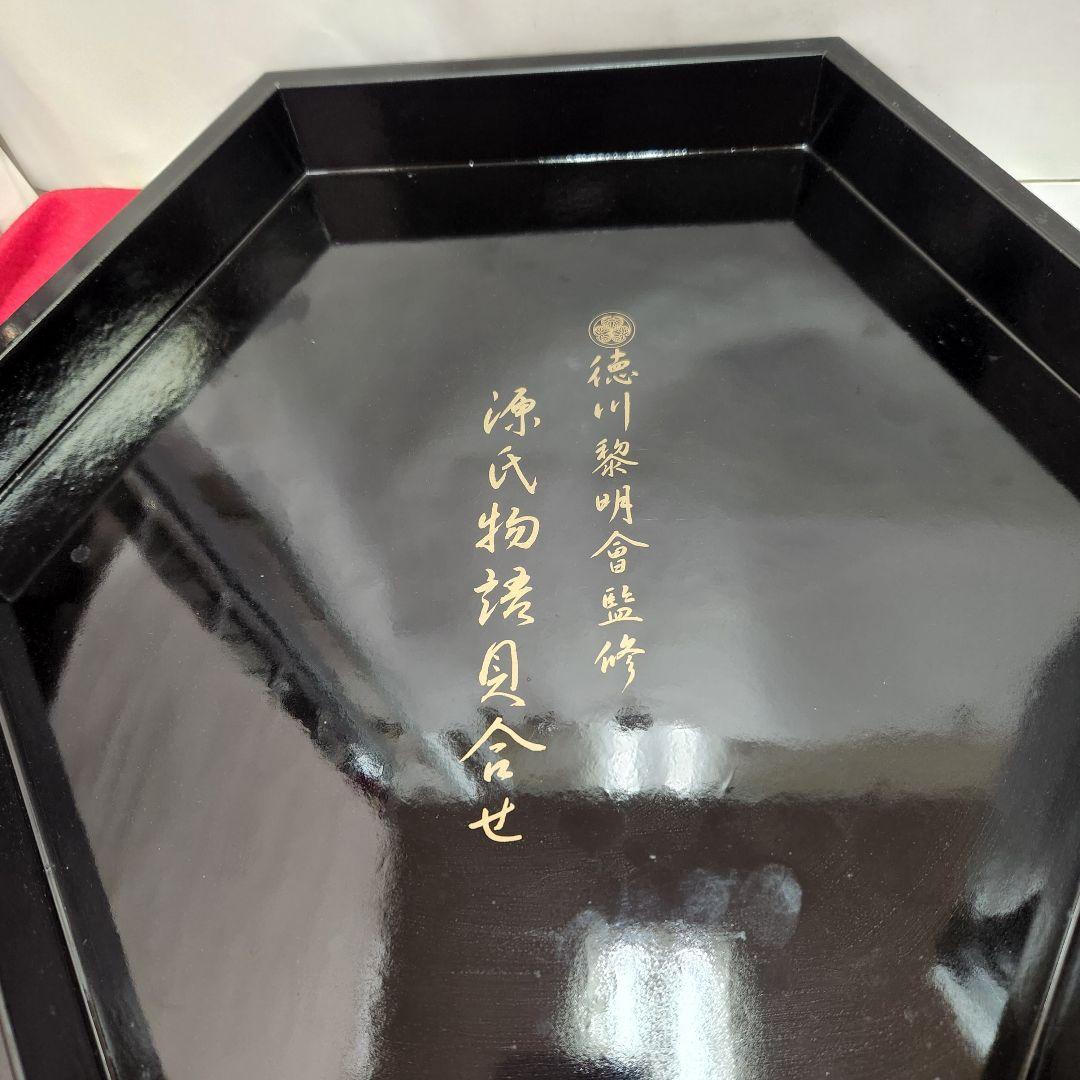 徳川黎明會監修
源氏物語貝合せ